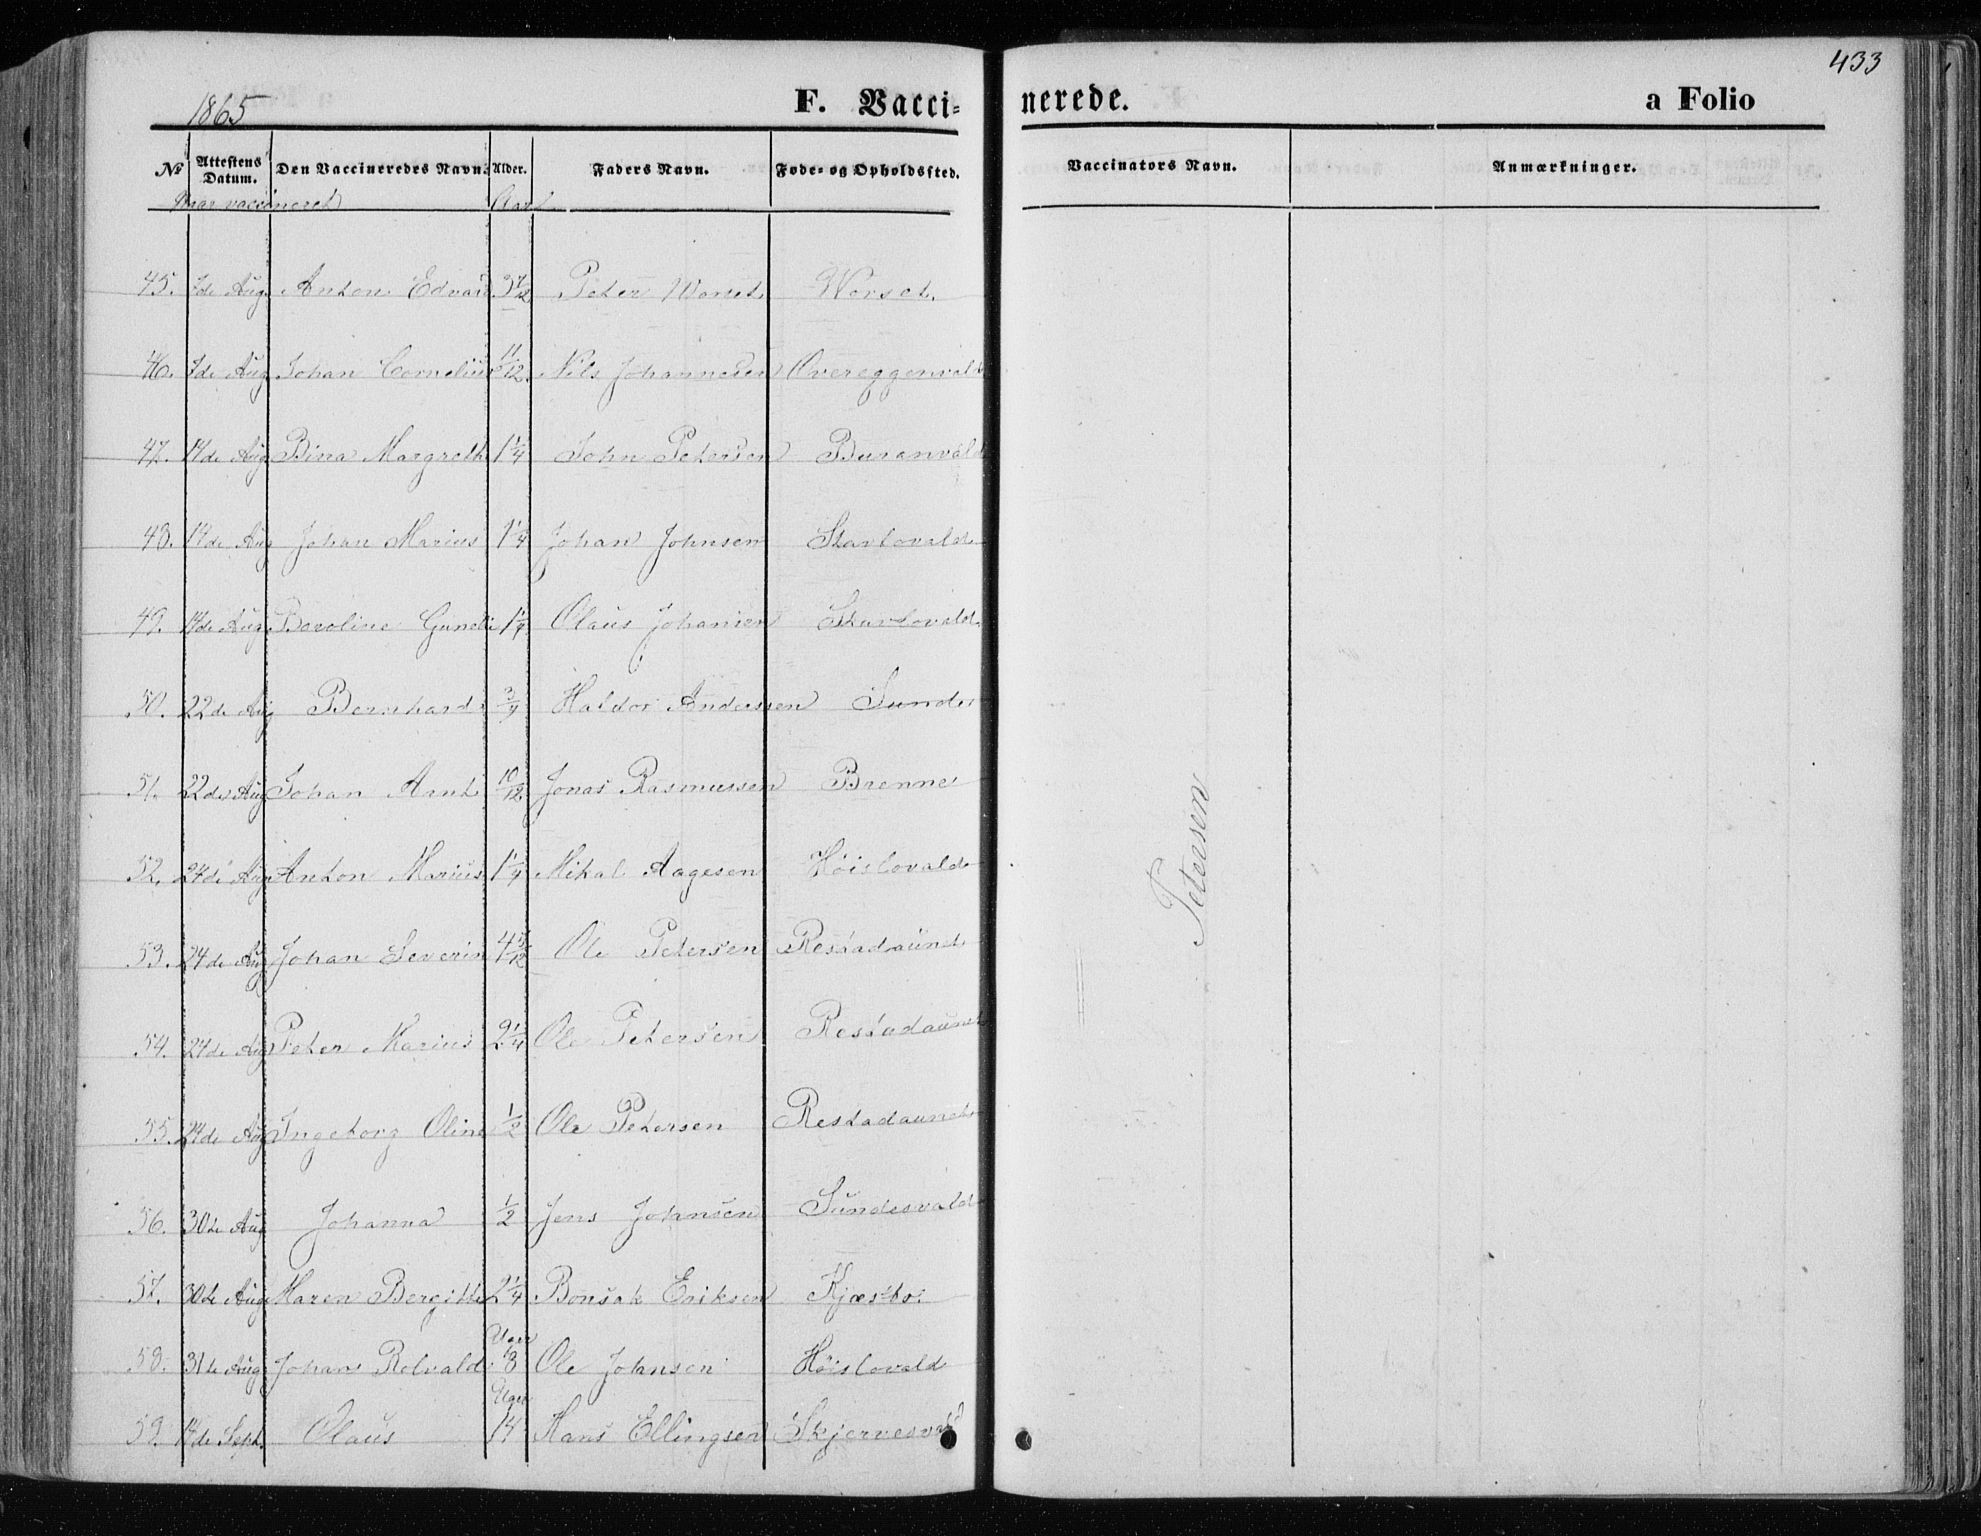 433
1865 F. Vacci- nerede. a Folio
No Attestens Datum. Den Vaccineredes Navn. Alder. Faders Navn. Føde- og Opholdssted. Vaccinators Navn. Anmærkninger.
Naar vaccineret Aar
45. 7de Aug Anton Edvard 3 7/12 Peter Worset Worset.
46. 7de Aug Johan Cornelius 11/12 Nils Johannesen Overeggenvald
47. 14de Aug Bina Margrethe 1 1/4 John Petersen Buranvald
48. 14de Aug Johan Marius 1 1/4 Johan Johnsen Skavlovald
49. 14de Aug. Beroline 1 1/4 Olaus Johansen Skavlovald
50. 22de Aug Bernhard 3/4 Haldor Anderssen Sunde
51. 22de Aug Johan Arnt 10/12 Jonas Rasmussen Brenne
52. 24de Aug Anton Marius 1 1/4 Mikal Aagesen Høislovald
53. 24de Aug Johan Severin 4 5/12 Ole Petersen Restadaunet
54. 24de Aug Peter Marius 2 1/4 Ole Petersen Restadaunet
55. 24de Aug Ingeborg Oline 1/2 Ole Petersen Restadaunet
56. 30te Aug Johanna 1/2 Jens Johnsen Sundesvald
57. 30te Aug Maren Bergitte 2 1/4 Bonsak Eriksen Kjæsbo.
58. 31te Aug Johan Rolvald Uger 8 Ole Johnsen Høislovald
59. 14de Sept. Olaus Uger 14 Hans Ellingsen Skjervesvald
Petersen